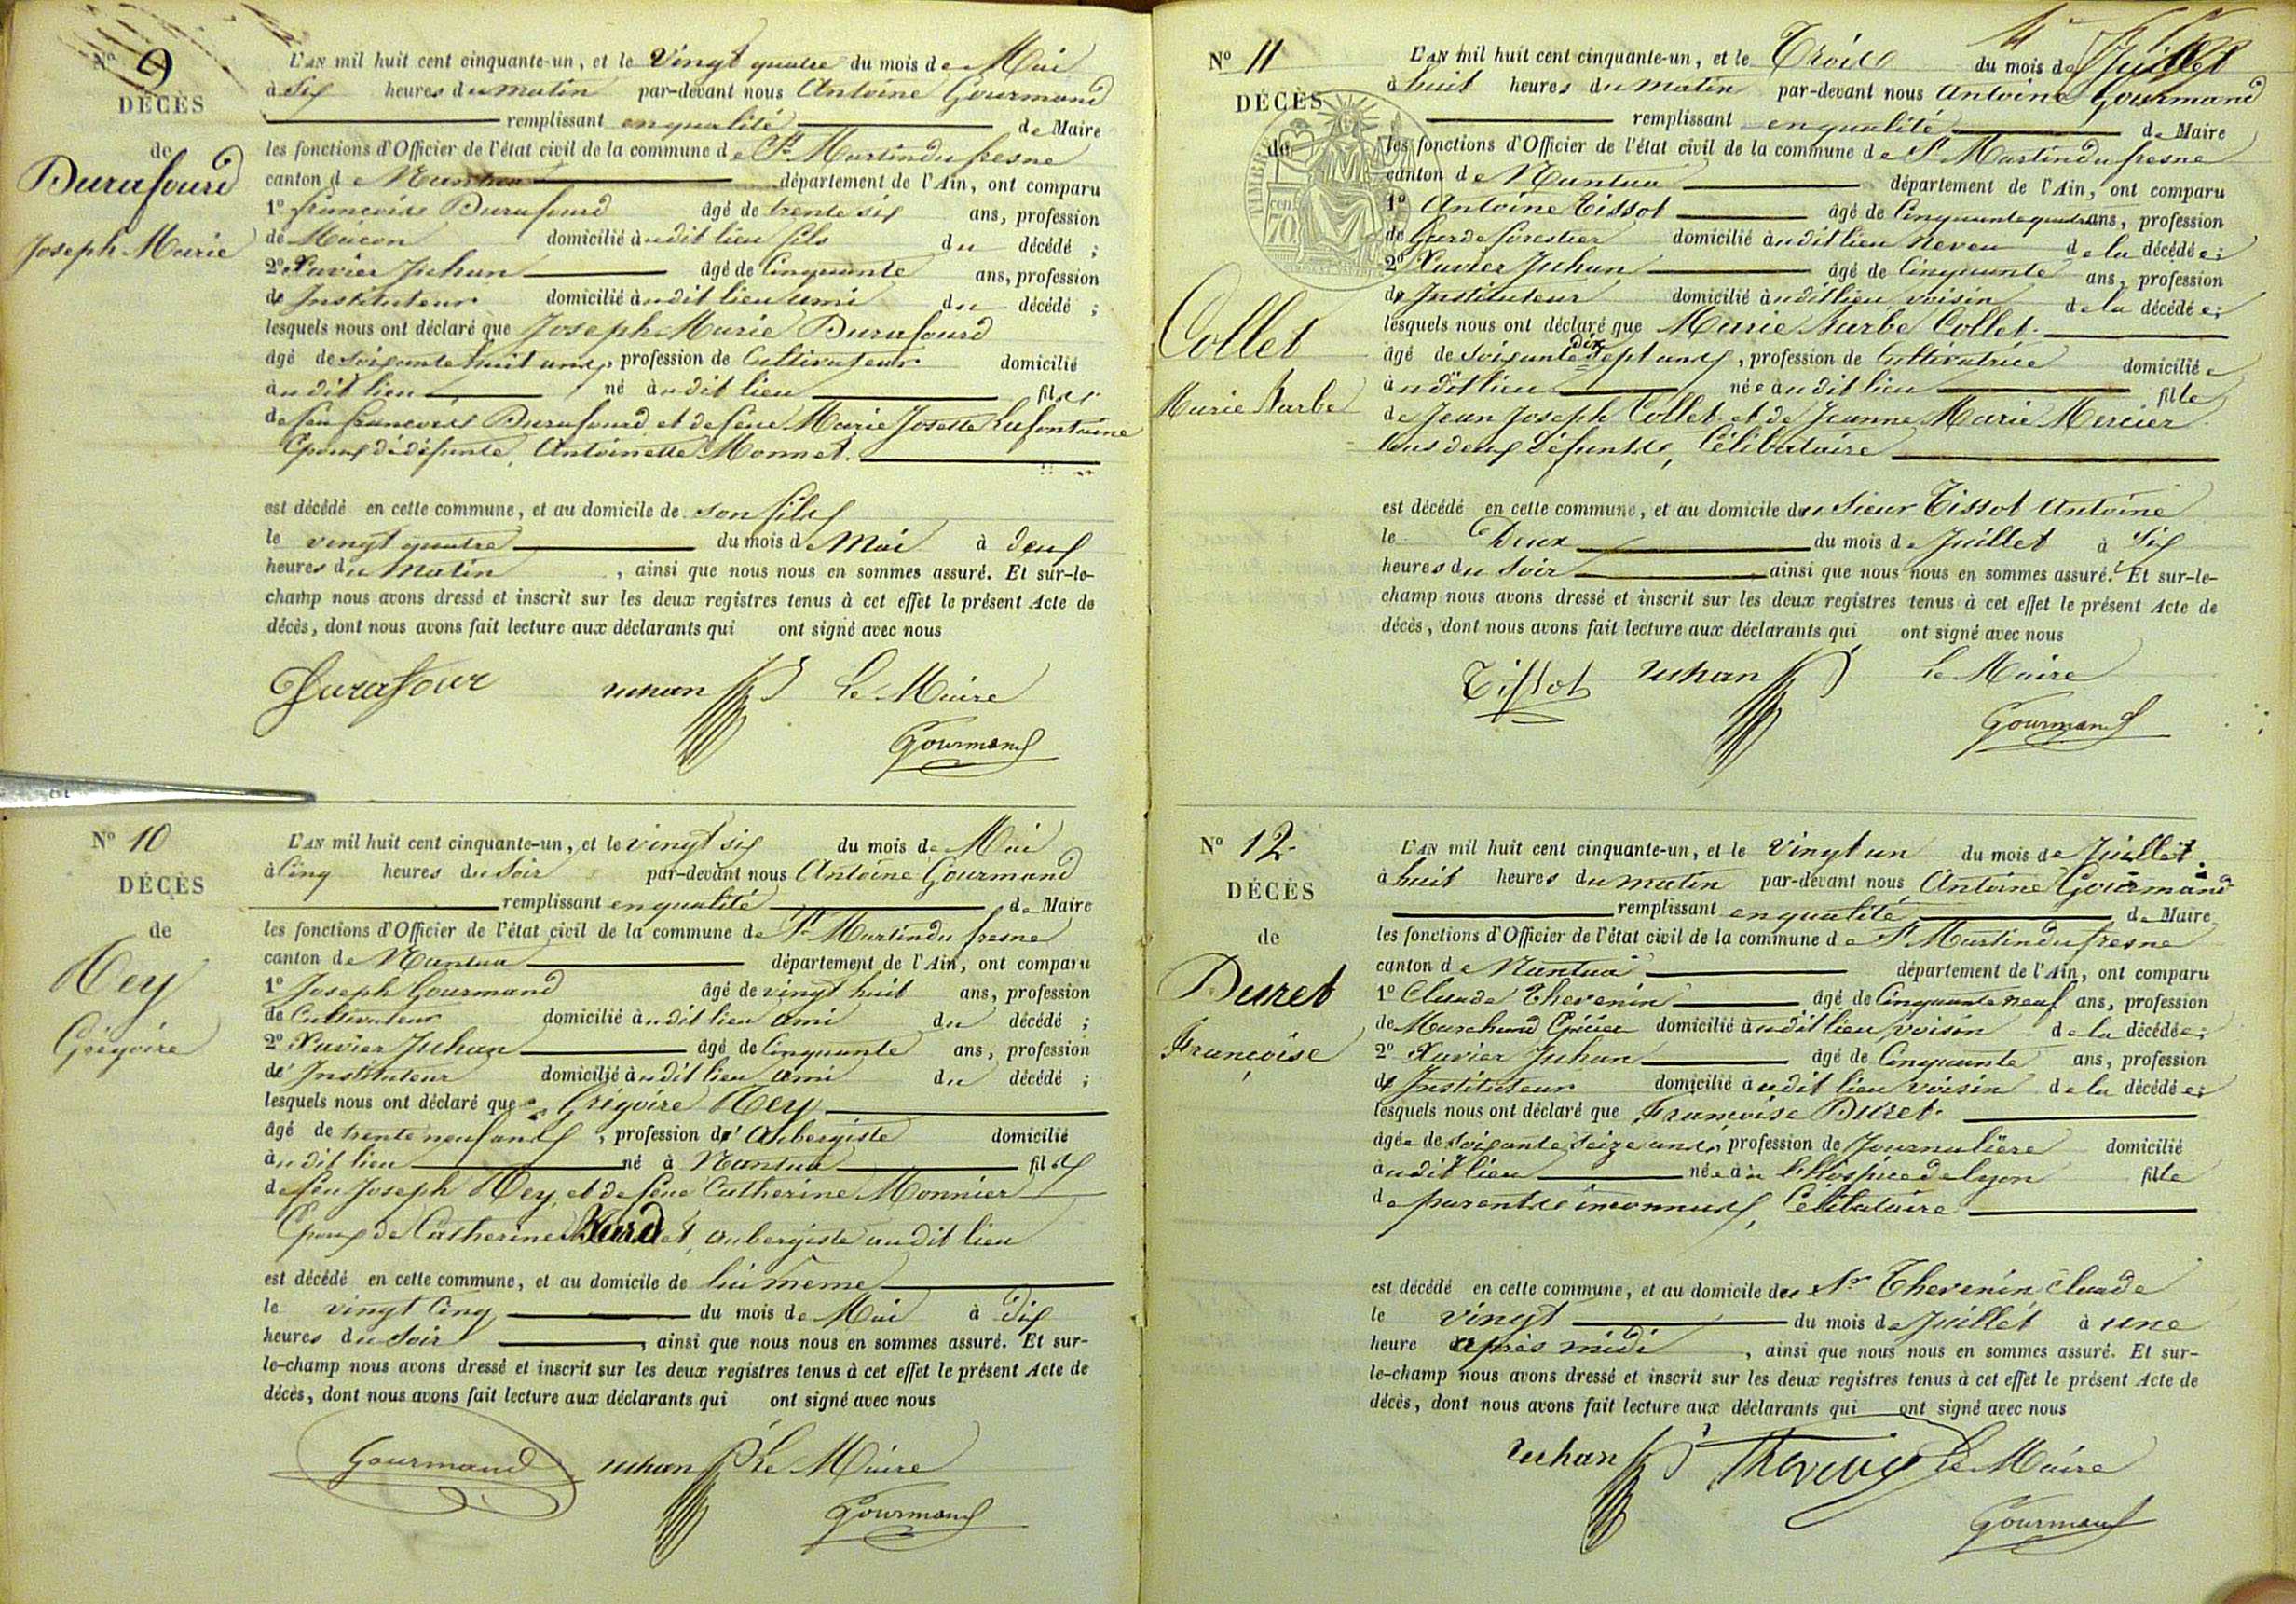 N° 9
DÉCÈS
de
Durafourd
Joseph Marie
L'AN mil huit cent cinquante-un, et le Vingt quatre du mois de Mai
à Six heures du matin par-devant nous Antoine Gourmand
remplissant en qualité de Maire
les fonctions d'Officier de l'état civil de la commune de St Martin du fresne
canton de Nantua département de l'Ain, ont comparu
1° françois Durafourd âgé de trente six ans, profession
de Maçon domicilié audit lieu fils du décédé ;
2° Xavier Juhan âgé de Cinquante ans, profession
de Instituteur domicilié audit lieu ami du décédé ;
lesquels nous ont déclaré que Joseph Marie Durafourd
âgé de soixante huit ans, profession de Cultivateur domicilié
audit lieu né audit lieu fils
de feu françois Durafourd et de feue Marie Josette Lafontaine
Epoux de défunte Antoinette Monnet.
est décédé en cette commune, et au domicile de son fils
le vingt quatre du mois de Mai à deux
heures du Matin, ainsi que nous nous en sommes assuré. Et sur-le-
champ nous avons dressé et inscrit sur les deux registres tenus à cet effet le présent Acte de
décès, dont nous avons fait lecture aux déclarants qui ont signé avec nous
Durafour Juhan Le Maire
Gourmand
N° 10
DÉCÈS
de
Rey
Grégoire
L'AN mil huit cent cinquante-un, et le vingt six du mois de Mai
à Cinq heures du Soir par-devant nous Antoine Gourmand
remplissant en qualité de Maire
les fonctions d'Officier de l'état civil de la commune de St Martin du fresne
canton de Nantua département de l'Ain, ont comparu
1° Joseph Gourmand âgé de vingt huit ans, profession
de Cultivateur domicilié audit lieu ami du décédé ;
2° Xavier Juhan âgé de Cinquante ans, profession
de Instituteur domicilié audit lieu ami du décédé ;
lesquels nous ont déclaré que Grégoire Rey
âgé de trente neuf ans, profession d'Aubergiste domicilié
audit lieu né à Nantua fils
de feu Joseph Rey, et de feue Catherine Monnier
Epoux de Catherine aubergiste audit lieu
est décédé en cette commune, et au domicile de lui même
le vingt Cinq du mois de Mai à dix
heures du Soir, ainsi que nous nous en sommes assuré. Et sur-
le-champ nous avons dressé et inscrit sur les deux registres tenus à cet effet le présent Acte de
décès, dont nous avons fait lecture aux déclarants qui ont signé avec nous
Gourmand Juhan Le Maire
Gourmand
N° 11
DÉCÈS
de
Collet
Marie Barbe
L'AN mil huit cent cinquante-un, et le Trois du mois de Juillet
à huit heures du matin par-devant nous Antoine Gourmand
remplissant en qualité de Maire
les fonctions d'Officier de l'état civil de la commune de St Martin du fresne
canton de Nantua département de l'Ain, ont comparu
1° Antoine Tissot âgé de Cinquante quatre ans, profession
de Garde forestier domicilié audit lieu neveu de la décédée ;
2° Xavier Juhan âgé de Cinquante ans, profession
de Instituteur domicilié audit lieu voisin de la décédée ;
lesquels nous ont déclaré que Marie Barbe Collet
âgé de soixante dix sept ans, profession de Cultivatrice domiciliée
audit lieu née audit lieu fille
de Jean Joseph Collet et de Jeanne Marie Mercier
tous deux défunts, Célibataire
est décédé en cette commune, et au domicile du Sieur Tissot Antoine
le Deux du mois de Juillet à Six
heures du Soir ainsi que nous nous en sommes assuré. Et sur-le-
champ nous avons dressé et inscrit sur les deux registres tenus à cet effet le présent Acte de
décès, dont nous avons fait lecture aux déclarants qui ont signé avec nous
Tissot Juhan Le Maire
Gourmand
N° 12
DÉCÈS
de
Duret
Françoise
L'AN mil huit cent cinquante-un, et le Vingt un du mois de Juillet
à huit heures du matin par-devant nous Antoine Gourmand
remplissant en qualité de Maire
les fonctions d'Officier de l'état civil de la commune de St Martin du fresne
canton de Nantua département de l'Ain, ont comparu
1° Claude Thevenin âgé de Cinquante neuf ans, profession
de Marchand Epicier domicilié audit lieu voisin de la décédée ;
2° Xavier Juhan âgé de Cinquante ans, profession
de Instituteur domicilié audit lieu voisin de la décédée ;
lesquels nous ont déclaré que Françoise Duret
âgée de soixante seize ans, profession de Journalière domicilié
audit lieu née à l'Hospice de Lyon fille
de parents inconnus, Célibataire
est décédé en cette commune, et au domicile du Sr Thevenin Claude
le vingt du mois de Juillet à une
heure après midi, ainsi que nous nous en sommes assuré. Et sur-
le-champ nous avons dressé et inscrit sur les deux registres tenus à cet effet le présent Acte de
décès, dont nous avons fait lecture aux déclarants qui ont signé avec nous
Juhan Thevenin Le Maire
Gourmand